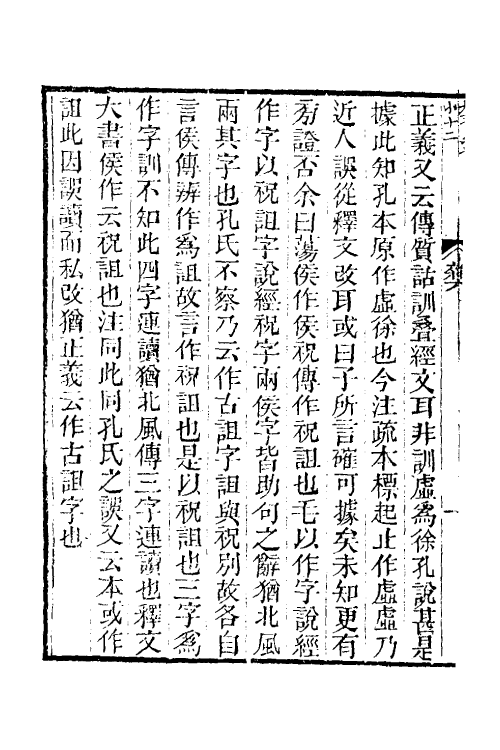 正義又云傳質詁訓疊經文耳非訓虛爲徐孔說甚是
據此知孔本原作虛徐也今注疏本標起止作虛虛乃
近人誤從釋文改耳或曰子所言確可據矣未知更有
㫄證否余曰蕩侯作侯祝傳作祝詛也毛以作字說經
作字以祝詛字說經祝字兩侯字皆助句之辭猶北風
兩其字也孔氏不察乃云作古詛字詛與祝別故各自
言侯傳辨作爲詛故言作祝詛也是以祝詛也三字爲
作字訓不知此四字連讀猶北風傳三字連讀也釋文
大書侯作云祝詛也注同此同孔氏之誤又云本或作
詛此因誤讀而私改猶正義云作古詛字也